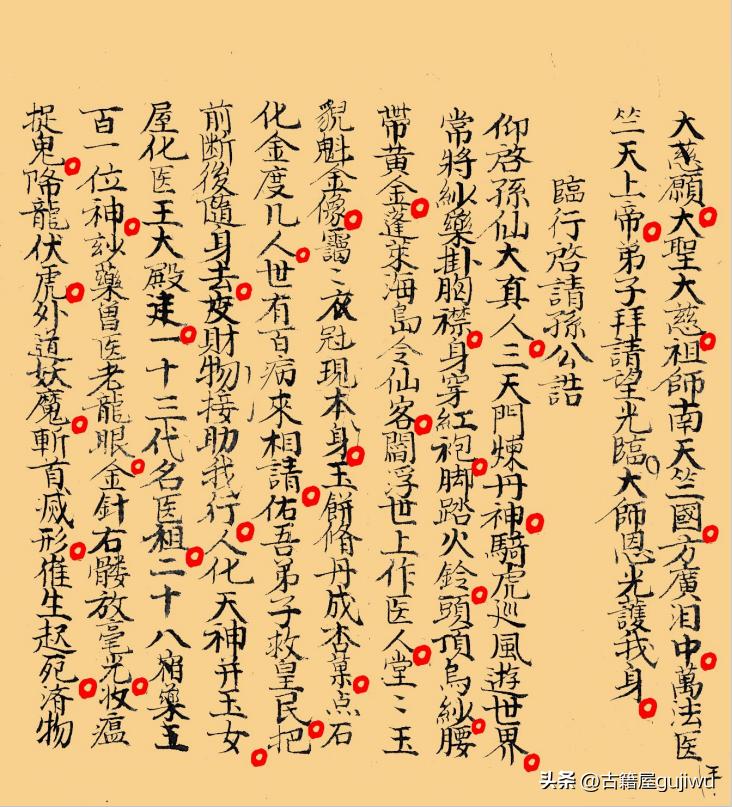 大慈願大聖大慈祖師南天竺國方廣泪中萬法医王
竺天上帝弟子拜請望光臨大師恩光護我身
臨行啓請孫公誥
仰啓孫仙大真人三天門煉丹神騎虎巡風遊世界
常將紗藥掛胸襟身穿紅袍脚踏火鈴頭頂烏紗腰
帶黃金蓬萊海島令仙客閻浮世上作医人堂〻玉
貌魁金像靄〻衣冠現本身玉餅脩丹成杏菓点石
化金度几人世有百病來相請佑吾弟子救皇民把
前断後隨身去疫財物接助我行人化天神并玉女
屋化医王大殿達一十三代名医祖二十八宿藥王
百一位神玅藥曽医老龍眼金針右髏放毫光妝瘟
捉鬼降龍伏虎外道妖魔斬首滅形催生起死濟物
头条 @古籍屋gujiwd